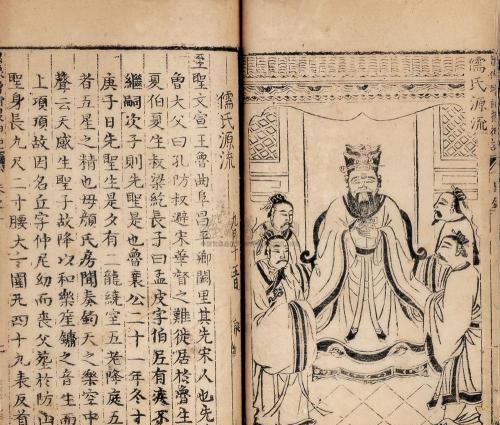 儒氏源流
儒氏源流
至聖文宣王魯曲阜昌平鄉闕里其先宋人也先
魯大父曰孔防叔避宋華督之難徙居於魯生
夏伯夏生叔梁紇長子曰孟皮字伯尼有疾不
繼嗣次子則先聖是也魯襄公二十一年冬十
庚子日先聖生是夕有二龍繞室五老降庭五
者五星之精也母顏氏房聞奏鈞天之樂空中
聲云天感生聖子故降以和樂笙鏞之音生而
上項項故因名丘字仲尼幼而喪父葬於防山
聖身長九尺二寸腰大十圍凡四十九表反首